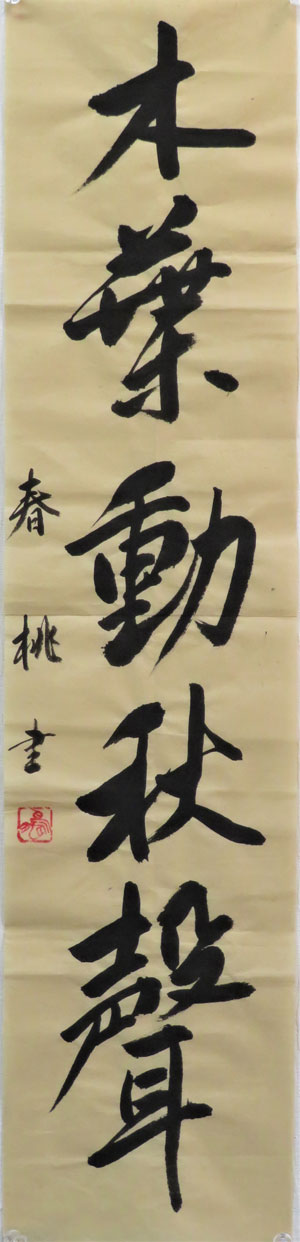 木葉動秋聲
春桃書